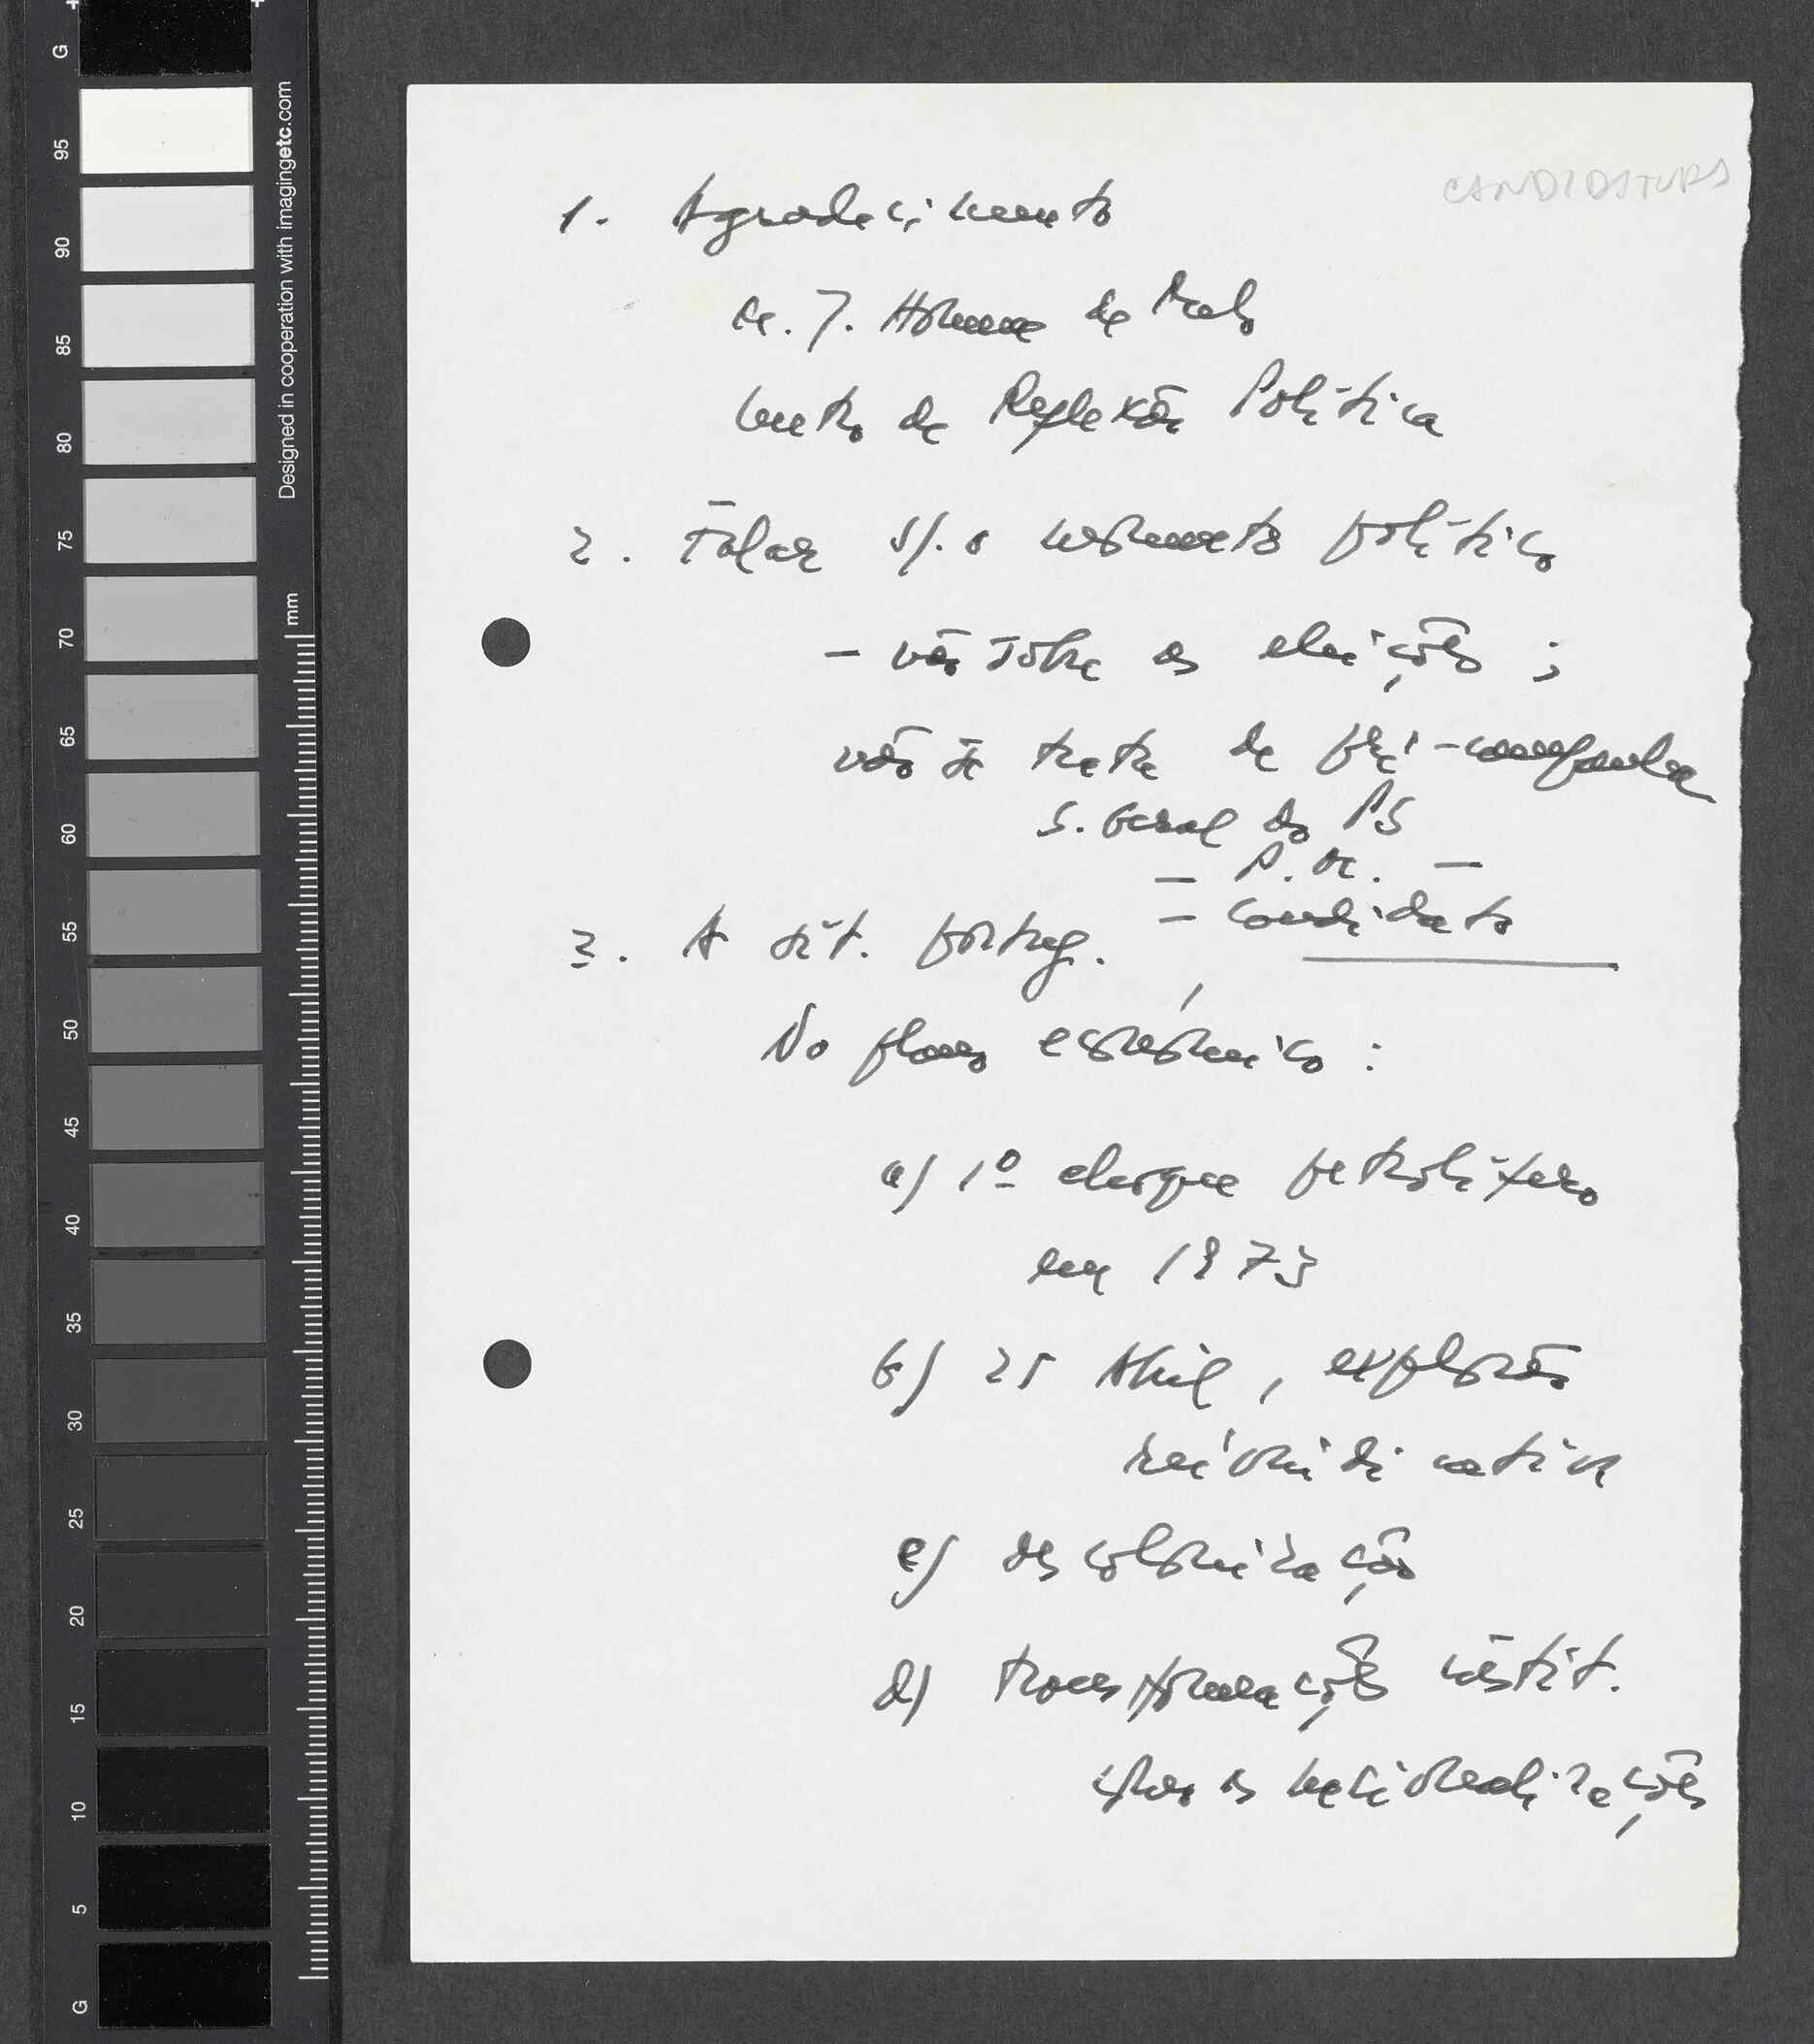 CANDIDATURA
1. Agradecimento
M. J. Homem de Melo
Centro de Reflexão Política
2. Falar s/. o momento político
- não sobre as eleições ;
não se trata de pré-campanha
S. Geral do PS
— P. M. —
— Candidato
3. A sit. portug.
No plano económico :
a) 1º choque petrolífero
em 1973
b) 25 Abril, explosão
reivindicativa
c) descolonização
d) transformações instit.
com as nacionalizações
G
95
90
85
80
75
70
65
60
55
50
45
40
35
30
25
20
15
10
5
G
Designed in cooperation with imagingetc.com
mm